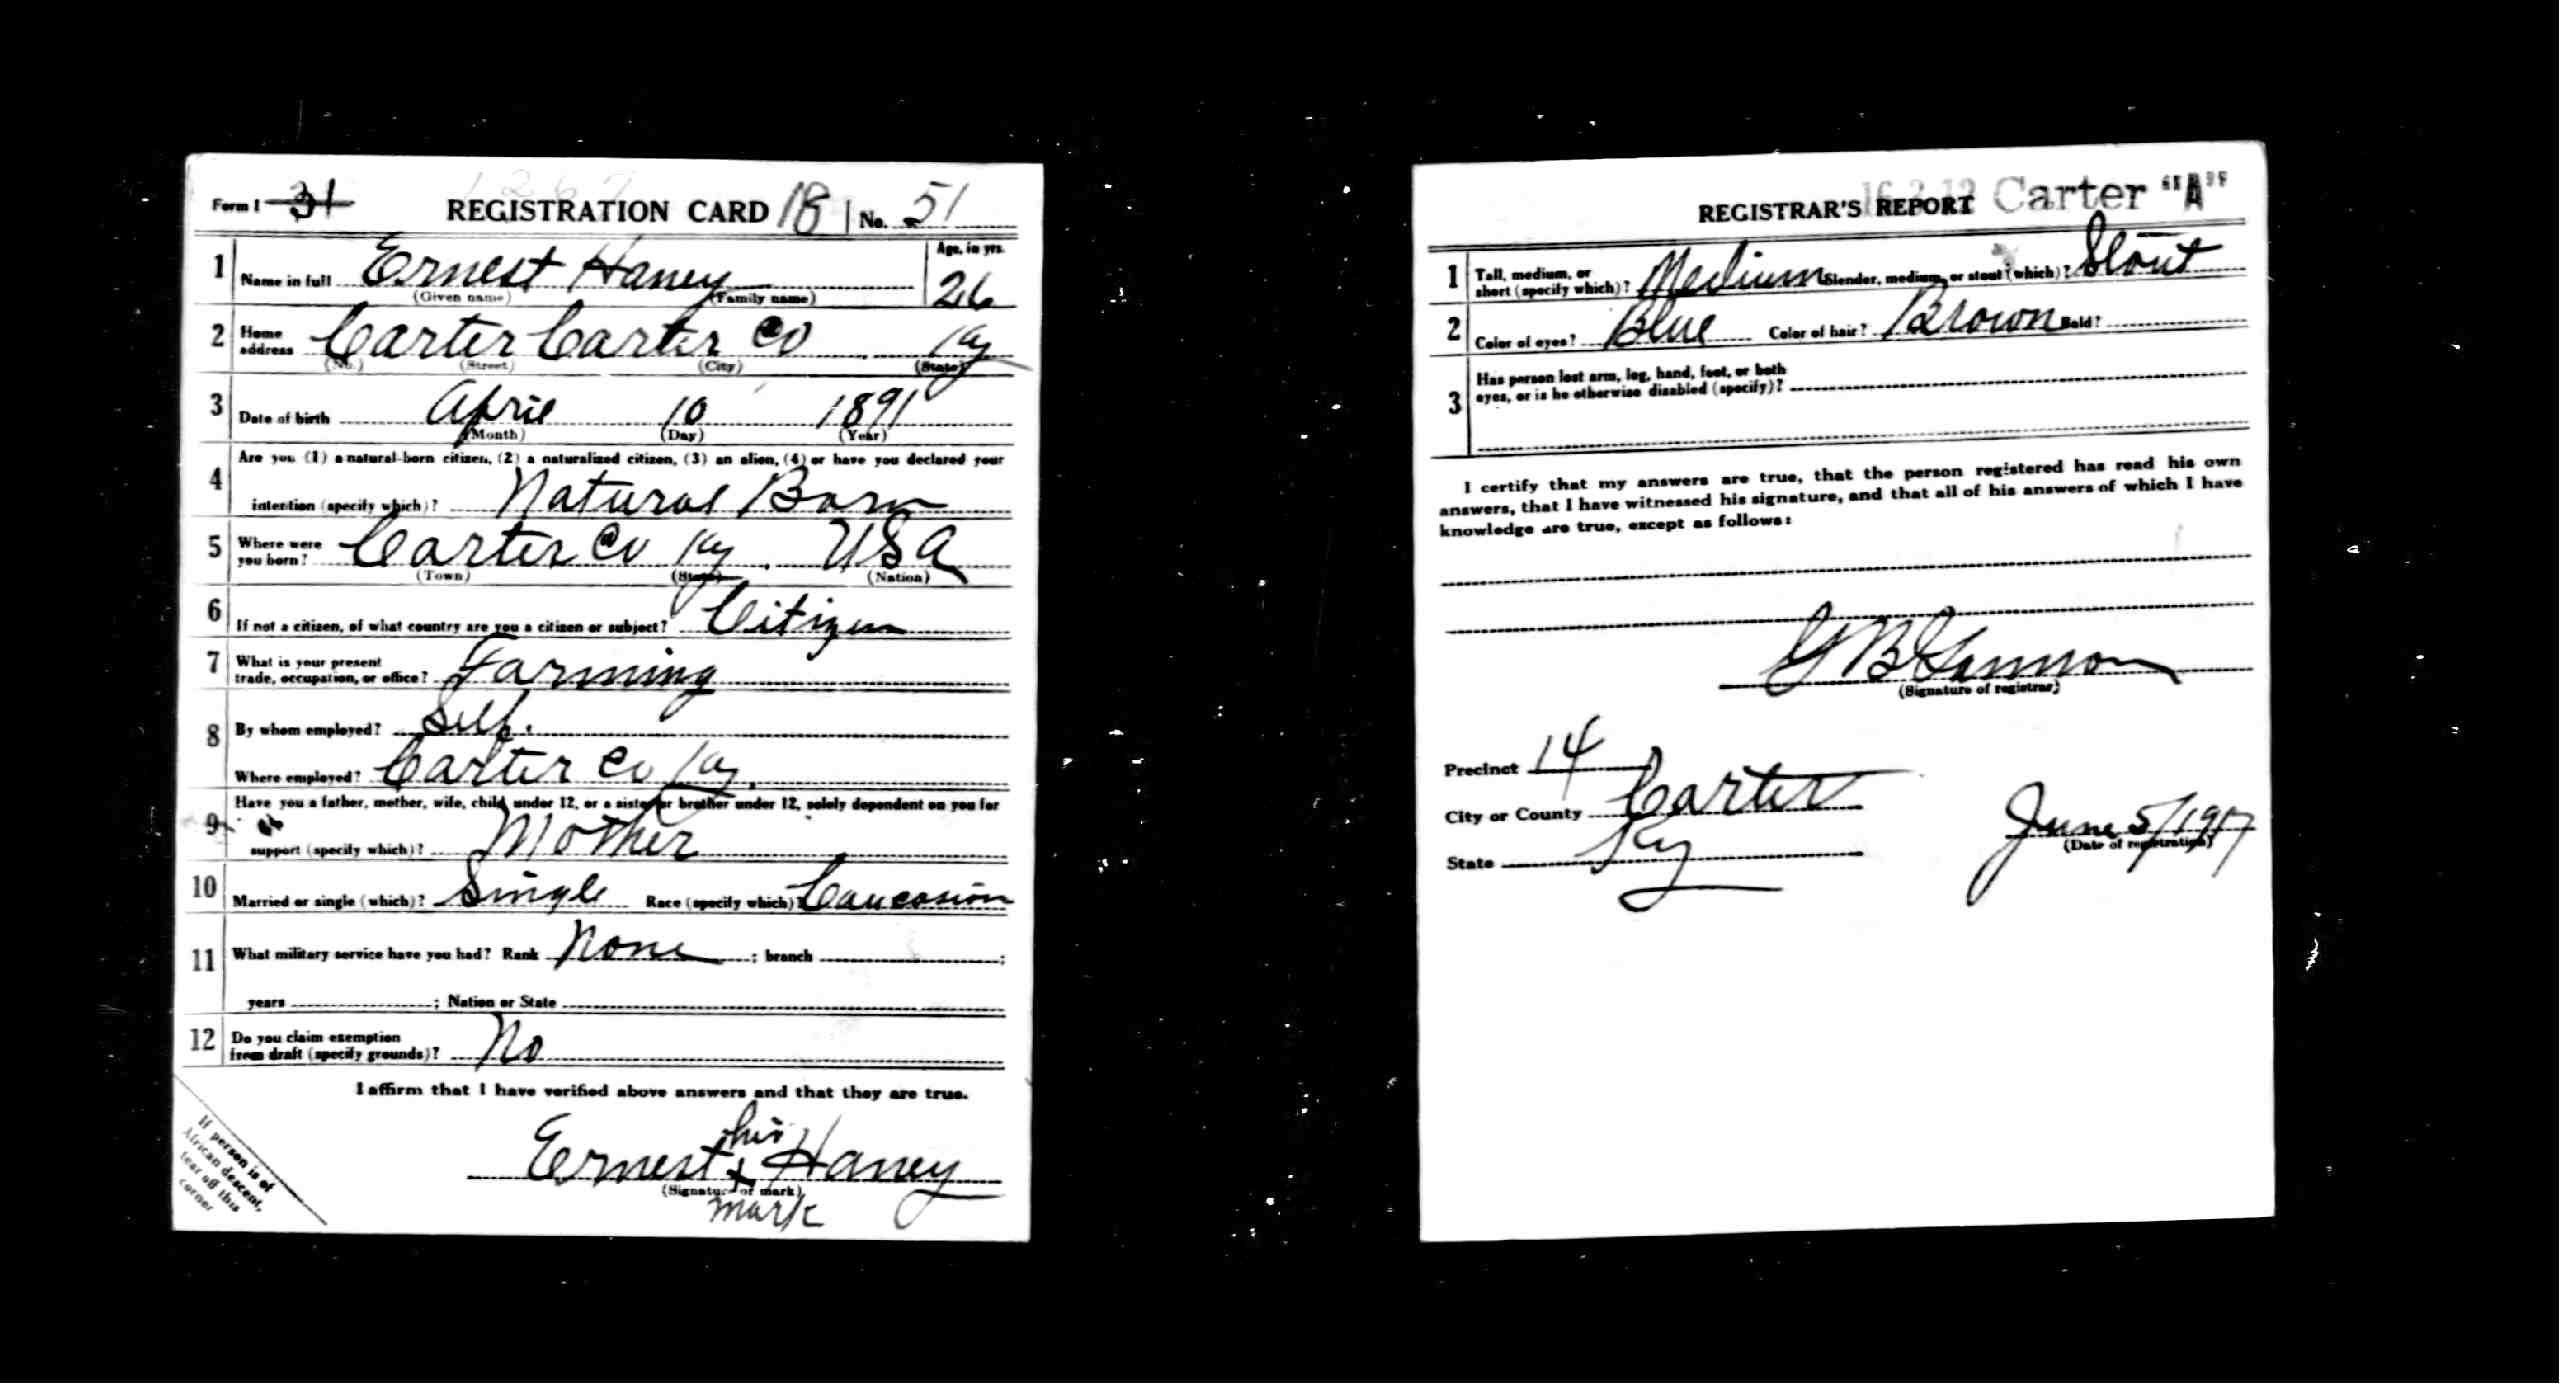 Form 1 31 REGISTRATION CARD 18 No. 51
1 Name in full Ernest Haney Age, in yrs. 26
(Given name) (Family name)
2 Home address Carter Carter Co Ky
(No.) (Street) (City) (State)
3 Date of birth April 10 1891
(Month) (Day) (Year)
4 Are you (1) a natural-born citizen, (2) a naturalized citizen, (3) an alien, (4) or have you declared your
intention (specify which)? Natural Born
5 Where were you born? Carter Co Ky, USA
(Town) (State) (Nation)
6 If not a citizen, of what country are you a citizen or subject? Citizen
7 What is your present
trade, occupation, or office? Farming
8 By whom employed? Self.
Where employed? Carter Co Ky.
9 Have you a father, mother, wife, child under 12, or a sister or brother under 12, solely dependent on you for
support (specify which)? Mother
10 Married or single (which)? Single Race (specify which)? Caucasion
11 What military service have you had? Rank None ; branch ;
years ; Nation or State
12 Do you claim exemption
from draft (specify grounds)? No
I affirm that I have verified above answers and that they are true.
his
Ernest x Haney
(Signature or mark)
mark
If person is of
African descent,
tear off this
corner
REGISTRAR'S REPORT 16-2-12 Carter "A"
1 Tall, medium, or
short (specify which)? Medium Slender, medium, or stout (which)? Stout
2 Color of eyes? Blue Color of hair? Brown Bald?
3 Has person lost arm, leg, hand, foot, or both
eyes, or is he otherwise disabled (specify)?
I certify that my answers are true, that the person registered has read his own
answers, that I have witnessed his signature, and that all of his answers of which I have
knowledge are true, except as follows:
G B
(Signature of registrar)
Precinct 14
City or County Carter
State Ky
June 5/1917
(Date of registration)